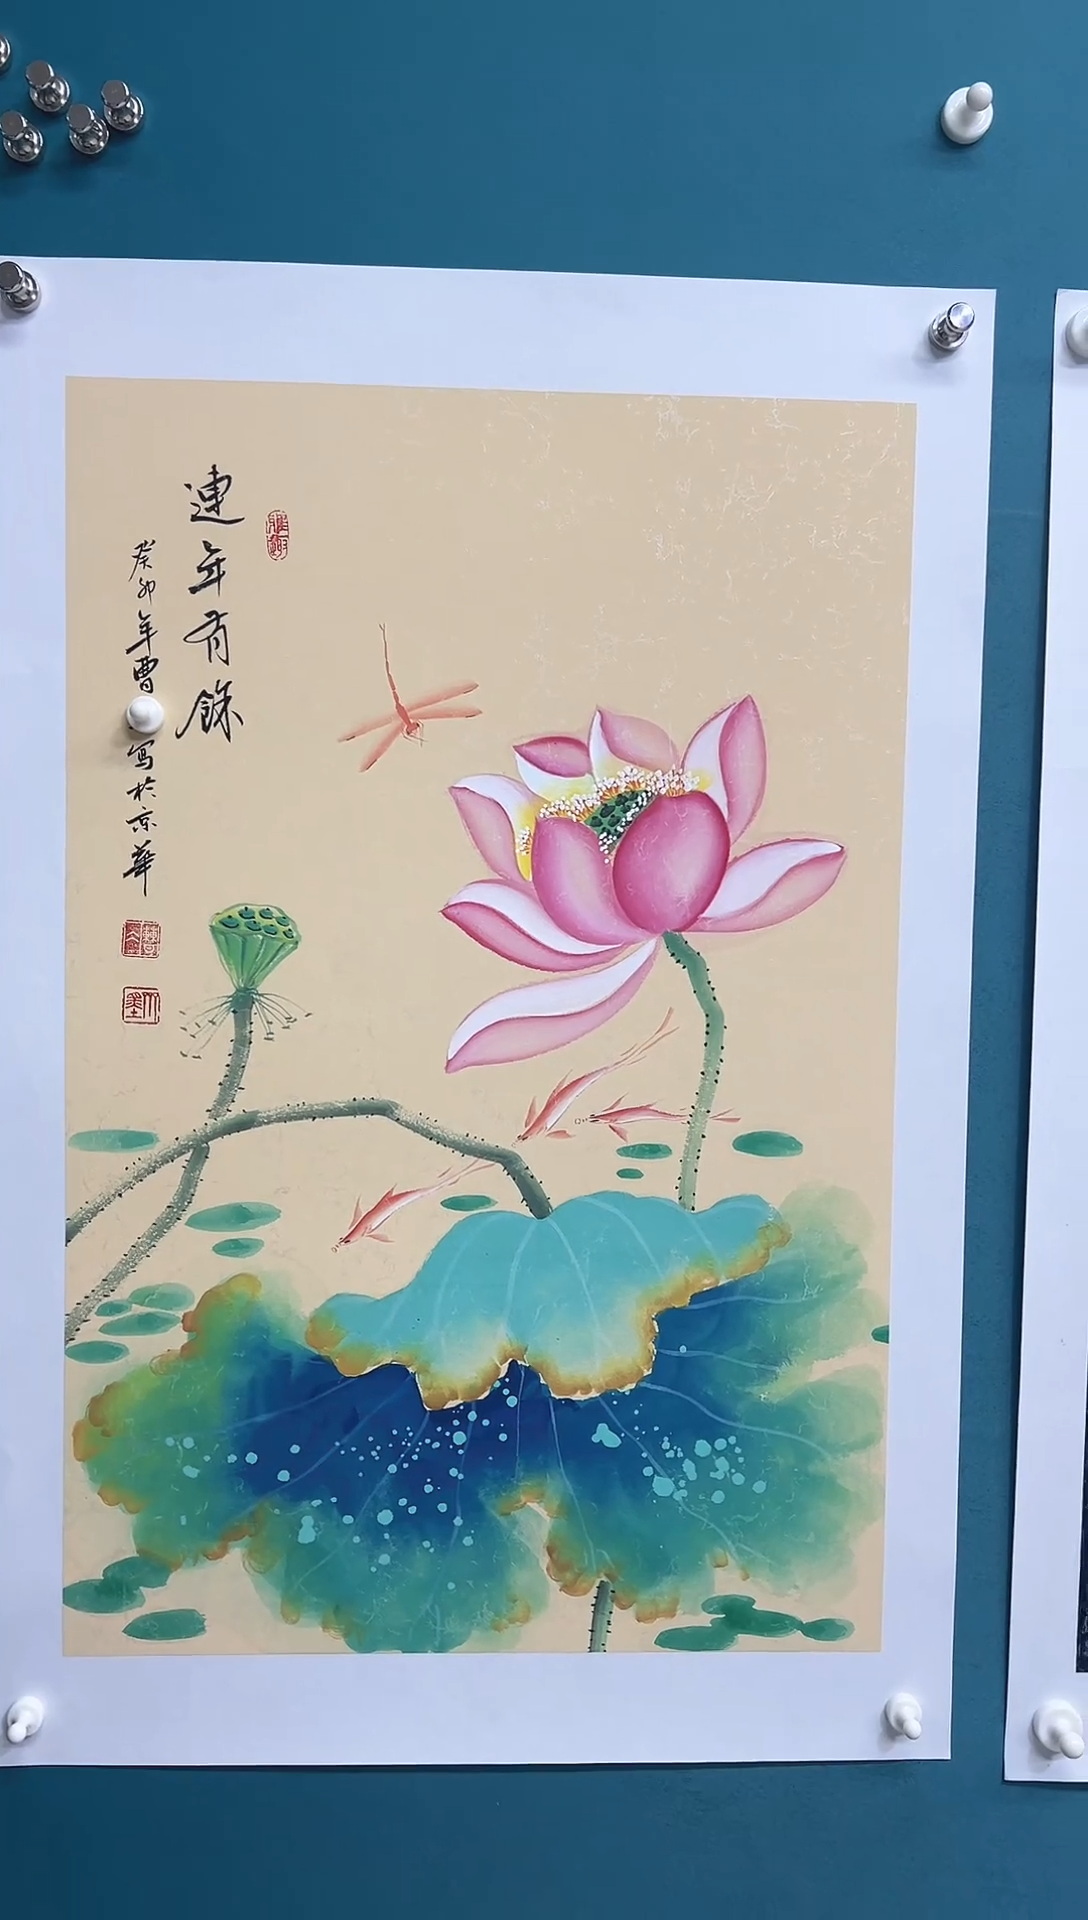 連年有餘
癸卯年曹
写於京華